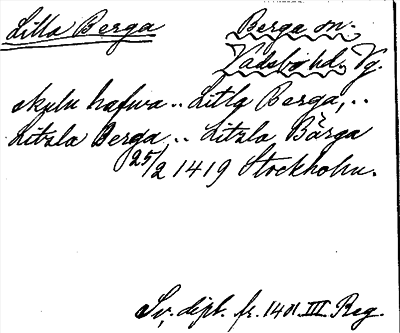 Lilla Berga Berga sn.
Vadsbo hd. Vg.
skulu hafwa .. Litla Berga, ..
Litzla Berga .. Litzla Bärga
25/2 1419 Stockholm.
Sv. dipl. fr. 1401 III Reg.